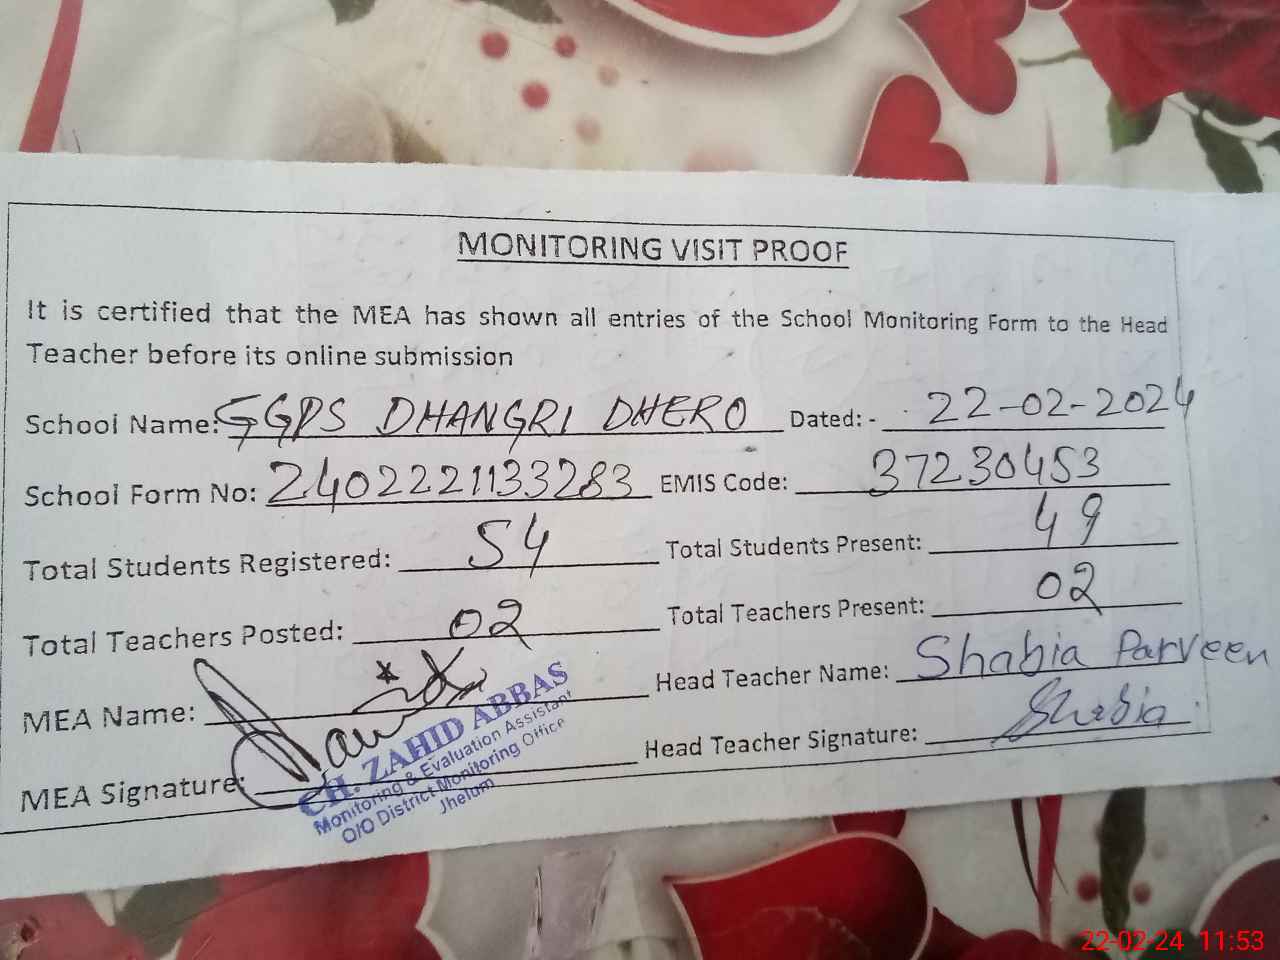 MONITORING VISIT PROOF
It is certified that the MEA has shown all entries of the School Monitoring Form to the Head
Teacher before its online submission
School Name: GGPS DHANGRI DHERO Dated: - 22-02-2024
School Form No: 2402221133283 EMIS Code: 37230453
Total Students Registered: 54 Total Students Present: 49
Total Teachers Posted: 02 Total Teachers Present: 02
MEA Name: Head Teacher Name: Shabia Parveen
MEA Signature: Head Teacher Signature: Shabia
CH. ZAHID ABBAS
Monitoring & Evaluation Assistant
O/O District Monitoring Office
Jhelum
22-02-24 11:53